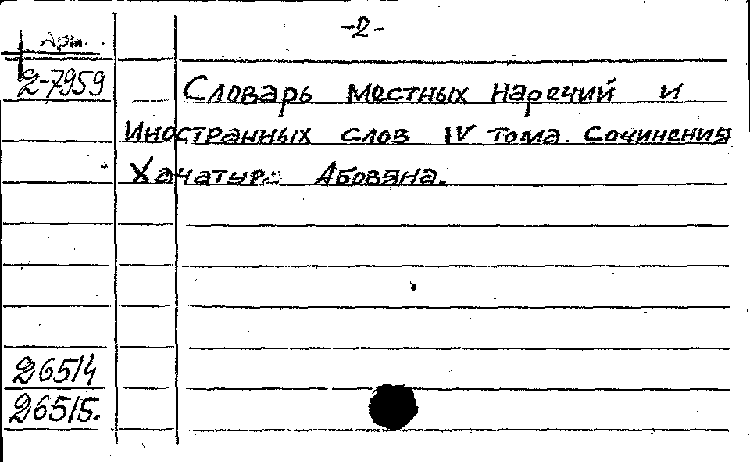 -2-
Арм.
2-7959
Словарь местных наречий и
иностранных слов IV тома сочинения
Хачатура Абовяна.
26514
26515.